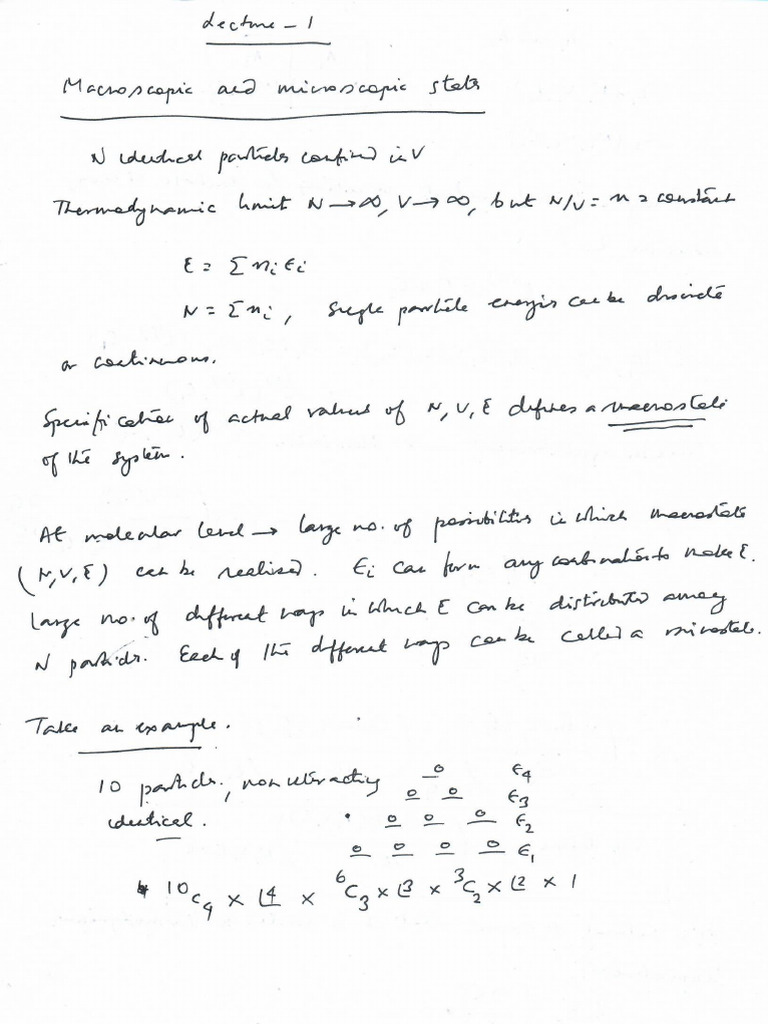 Lecture - 1
Macroscopic and microscopic states
N identical particles confined in V
Thermodynamic limit N → ∞, V → ∞, but N/V = n = constant
E = Σ n_i ε_i
N = Σ n_i, Single particle energies can be discrete
or continuous.
Specification of actual values of N, V, E defines a macrostate
of the system.
At molecular level → large no. of possibilities in which macrostate
(N, V, E) can be realised. ε_i can form any combination to make E.
Large no. of different ways in which E can be distributed among
N particles. Each of the different ways can be called a microstate.
Take an example.
10 particles, non interacting o ε_4
o o ε_3
identical. o o o ε_2
o o o o ε_1
¹⁰C₄ × ⌊4 × ⁶C₃ × ⌊3 × ³C₂ × ⌊2 × 1